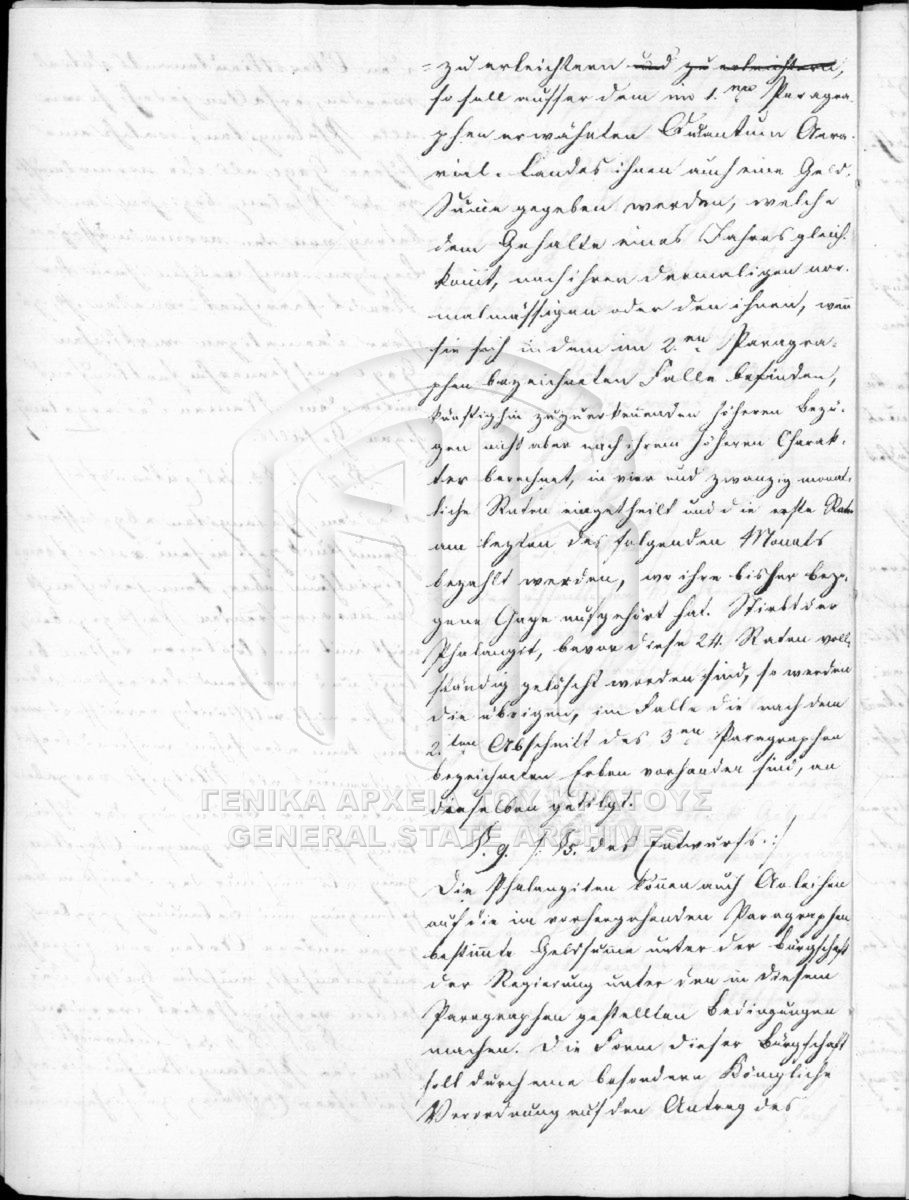 zu erleichtern und zu erleichtern,
so soll ausser dem im 1.ten Paragra-
phen erwähnten Quantum Aera-
rial-Landes ihnen auch eine Geld-
Sume gegeben werden, welche
dem Gehalte eines Jahres gleich-
komt, nach ihren dermaligen nor-
malmässigen oder den ihnen, wenn
sie sich in dem im 2.en Paragra-
phen bezeichneten Falle befinden,
künftighin zuzuerkennenden höheren Bezü-
gen nicht aber nach ihrem höheren Charak-
ter berechnet, in vier und zwanzig monat-
liche Raten eingetheilt und die erste Rate
am lezten des folgenden Monats
bezahlt werden, wo ihre bisher bezo-
gene Gage aufgehört hat. Stirbt der
Phalangit, bevor diese 24. Raten voll-
ständig gelöscht worden sind, so werden
die übrigen, im Falle die nach dem
2.ten Abschnitt des 3.en Paragraphen
bezeichneten Erben vorhanden sind, an
dieselben getilgt.
ΓΕΝΙΚΑ ΑΡΧΕΙΑ ΤΟΥ ΚΡΑΤΟΥΣ
GENERAL STATE ARCHIVES
§. 9. /: §5. des Entwurfs. :/
Die Phalangiten können auch Anleihen
auf die im vorhergehenden Paragraphen
bestimte Geldsume unter der Bürgschaft
der Regierung unter den in diesem
Paragraphen gestellten Bedingungen
machen. Die Form dieser Bürgschaft
soll durch eine besondere Königliche
Verordnung auf den Antrag des